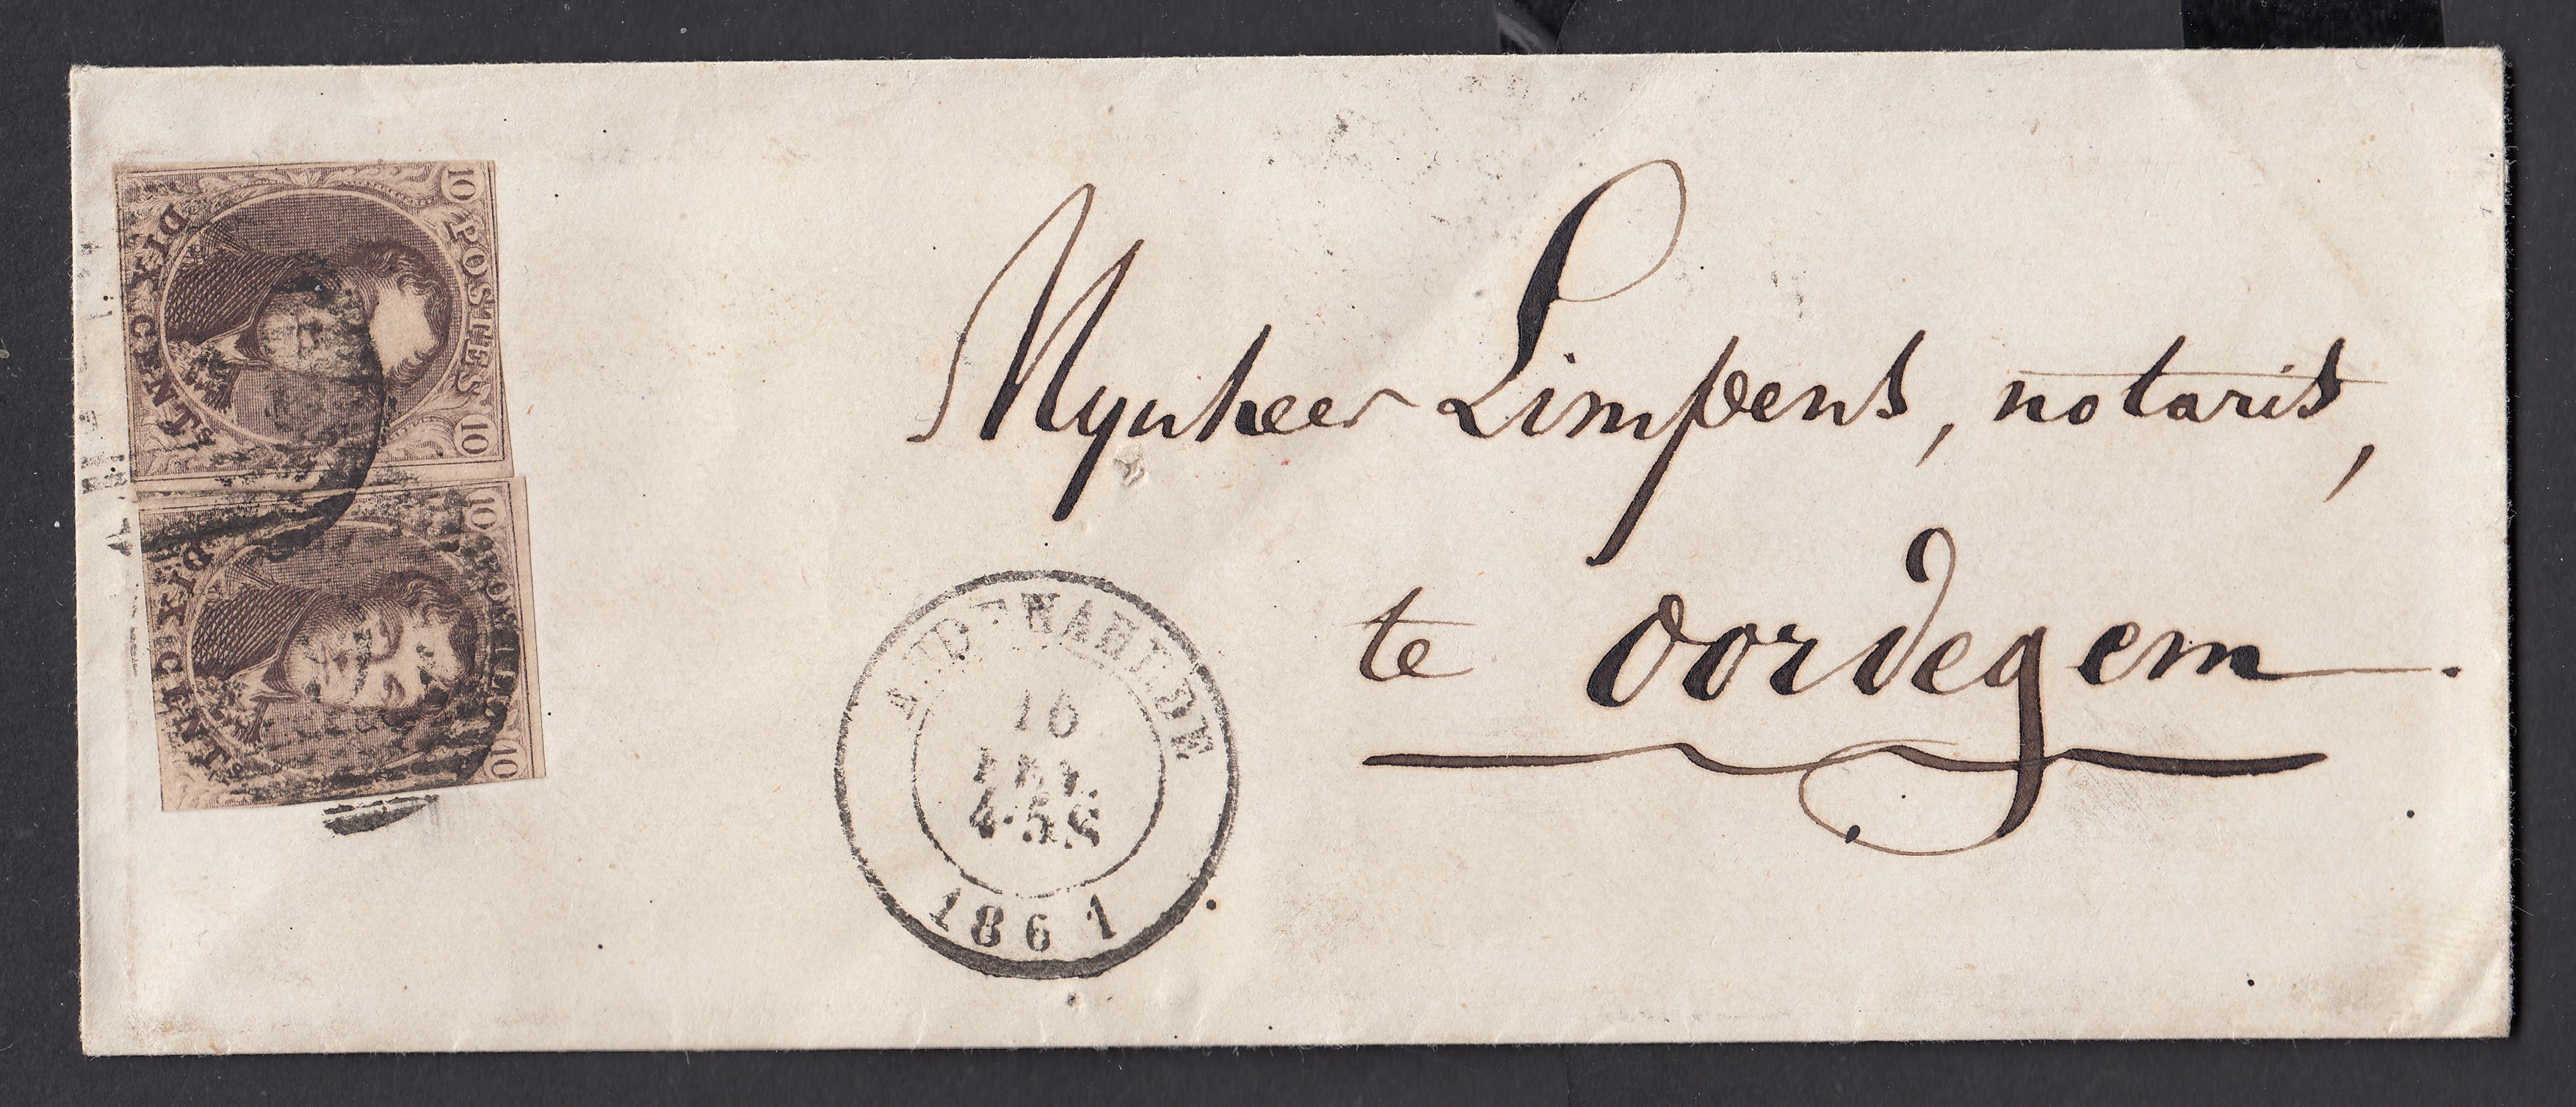 10 POSTES 10
DIX CENTS
10 POSTES 10
DIX CENTS
Mynheer Limpens, notaris,
te oordegem.
AUDENAERDE
16
4-5S
1861